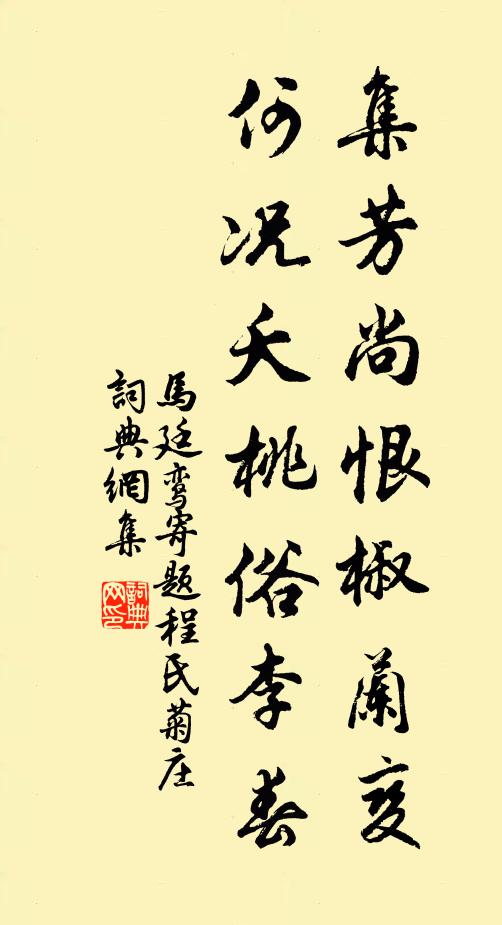 集芳尚恨椒蘭变
何况夭桃俗李春
馬廷鸾寄题程氏菊庄
詞典網集
詞典网印